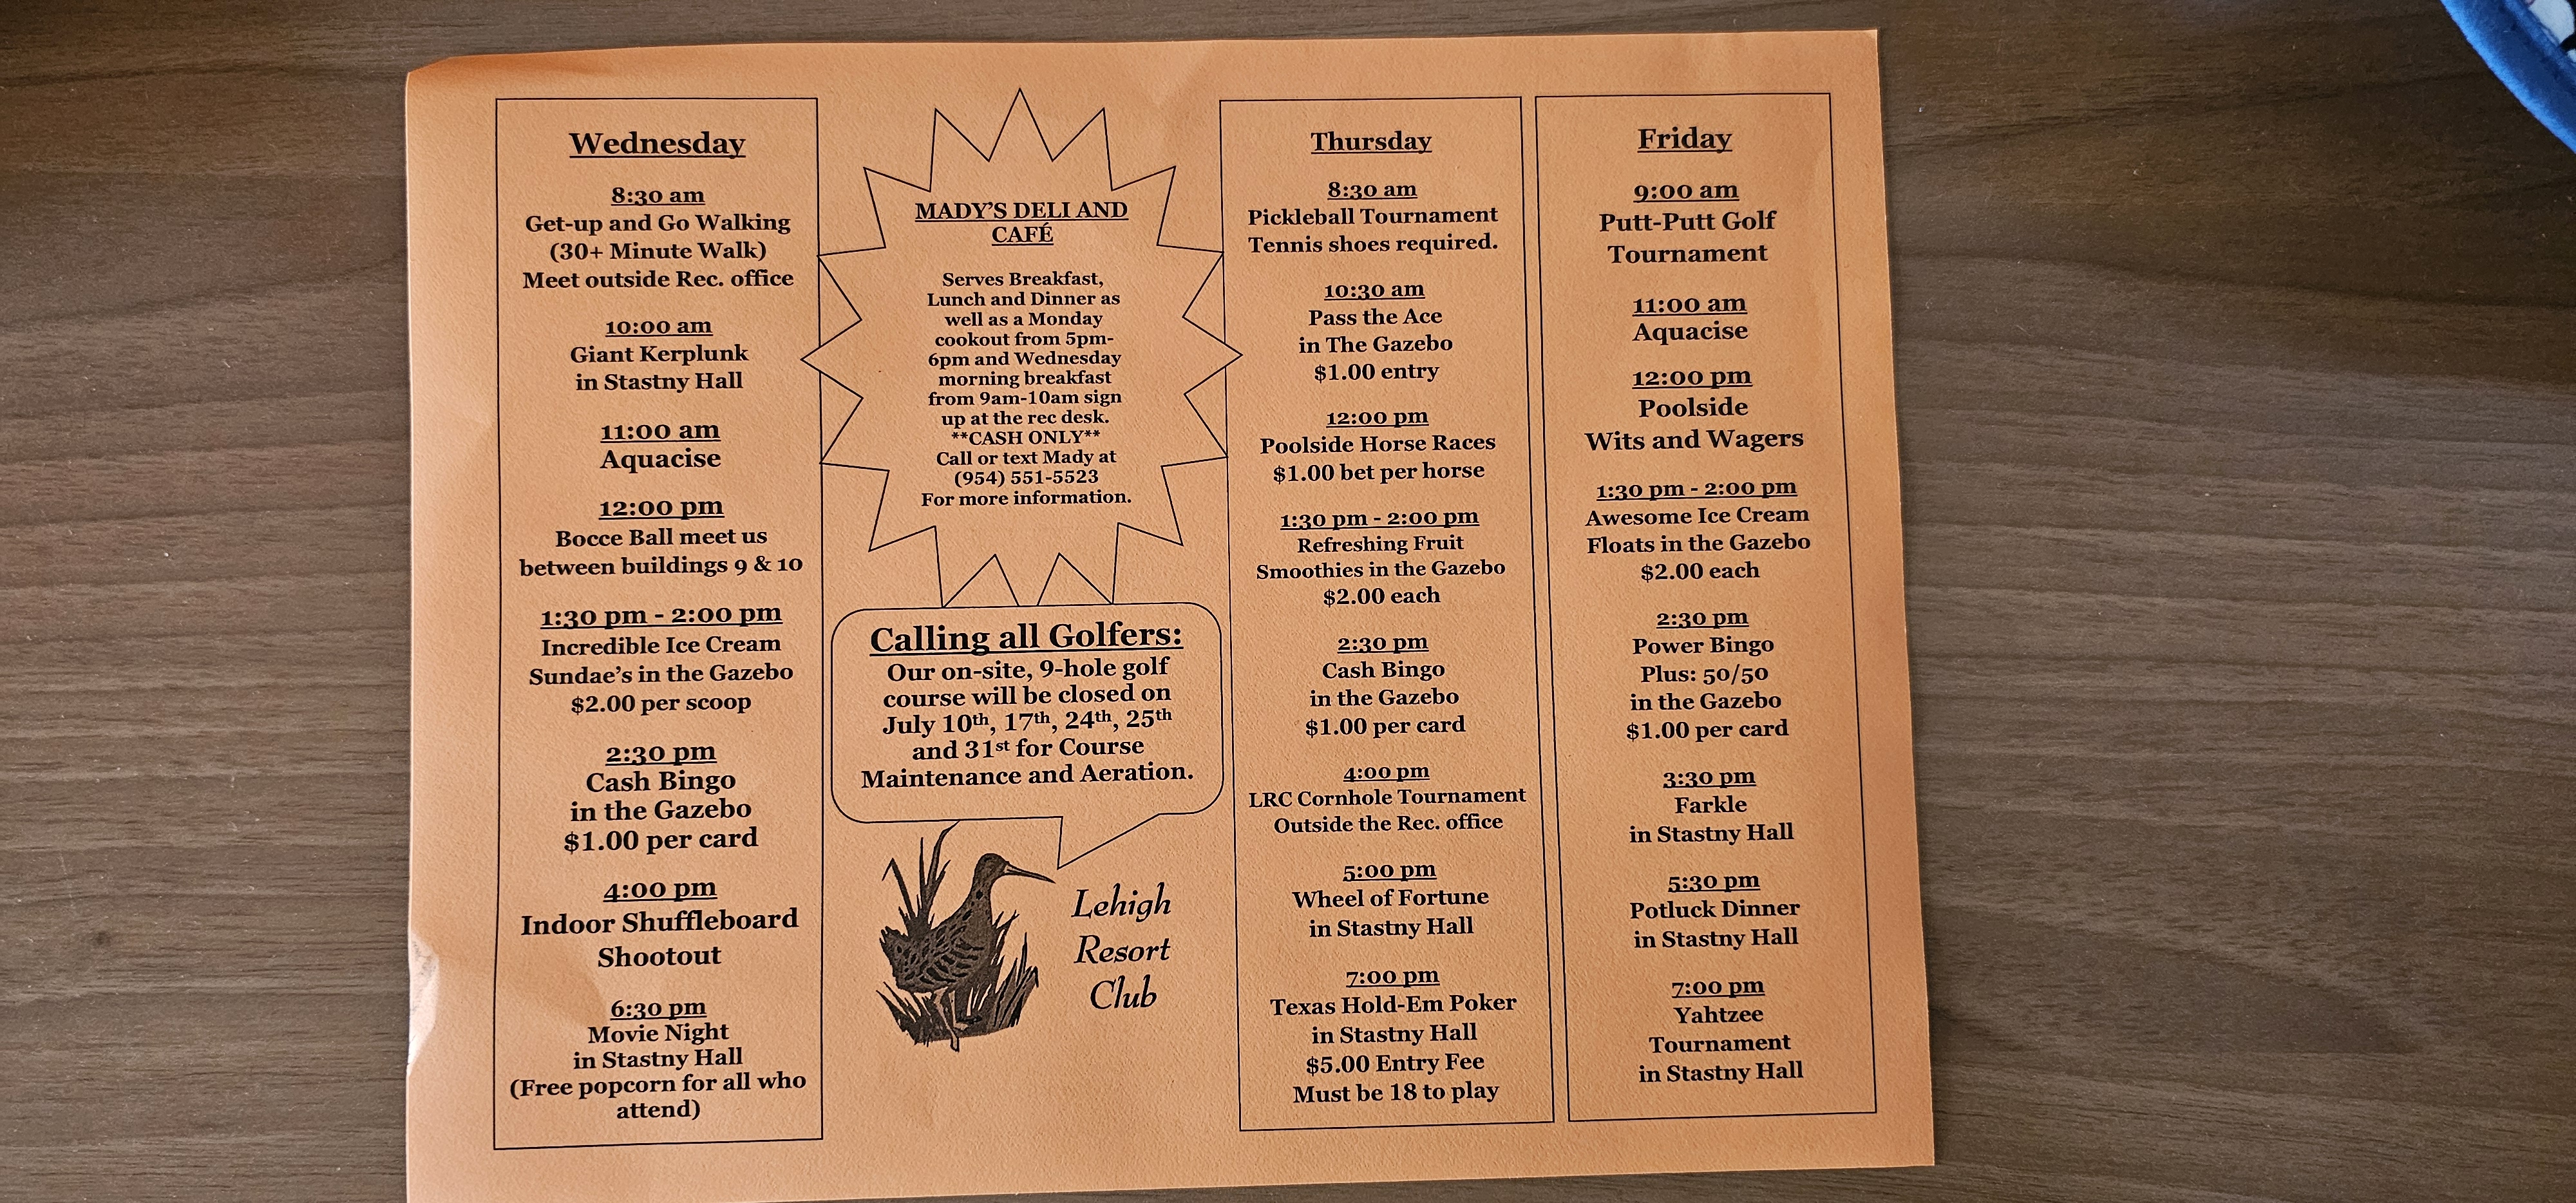 Wednesday
8:30 am
Get-up and Go Walking
(30+ Minute Walk)
Meet outside Rec. office
10:00 am
Giant Kerplunk
in Stastny Hall
11:00 am
Aquacise
12:00 pm
Bocce Ball meet us
between buildings 9 & 10
1:30 pm - 2:00 pm
Incredible Ice Cream
Sundae's in the Gazebo
$2.00 per scoop
2:30 pm
Cash Bingo
in the Gazebo
$1.00 per card
4:00 pm
Indoor Shuffleboard
Shootout
6:30 pm
Movie Night
in Stastny Hall
(Free popcorn for all who
attend)
MADY'S DELI AND
CAFÉ
Serves Breakfast,
Lunch and Dinner as
well as a Monday
cookout from 5pm-
6pm and Wednesday
morning breakfast
from 9am-10am sign
up at the rec desk.
**CASH ONLY**
Call or text Mady at
(954) 551-5523
For more information.
Calling all Golfers:
Our on-site, 9-hole golf
course will be closed on
July 10th, 17th, 24th, 25th
and 31st for Course
Maintenance and Aeration.
Lehigh
Resort
Club
Thursday
8:30 am
Pickleball Tournament
Tennis shoes required.
10:30 am
Pass the Ace
in The Gazebo
$1.00 entry
12:00 pm
Poolside Horse Races
$1.00 bet per horse
1:30 pm - 2:00 pm
Refreshing Fruit
Smoothies in the Gazebo
$2.00 each
2:30 pm
Cash Bingo
in the Gazebo
$1.00 per card
4:00 pm
LRC Cornhole Tournament
Outside the Rec. office
5:00 pm
Wheel of Fortune
in Stastny Hall
7:00 pm
Texas Hold-Em Poker
in Stastny Hall
$5.00 Entry Fee
Must be 18 to play
Friday
9:00 am
Putt-Putt Golf
Tournament
11:00 am
Aquacise
12:00 pm
Poolside
Wits and Wagers
1:30 pm - 2:00 pm
Awesome Ice Cream
Floats in the Gazebo
$2.00 each
2:30 pm
Power Bingo
Plus: 50/50
in the Gazebo
$1.00 per card
3:30 pm
Farkle
in Stastny Hall
5:30 pm
Potluck Dinner
in Stastny Hall
7:00 pm
Yahtzee
Tournament
in Stastny Hall